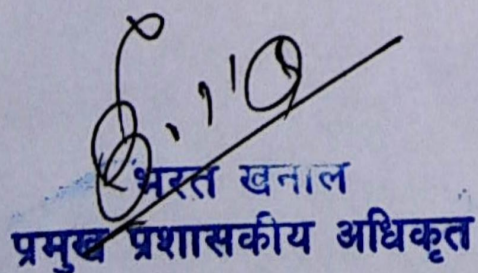 भरत खनाल
प्रमुख प्रशासकीय अधिकृत